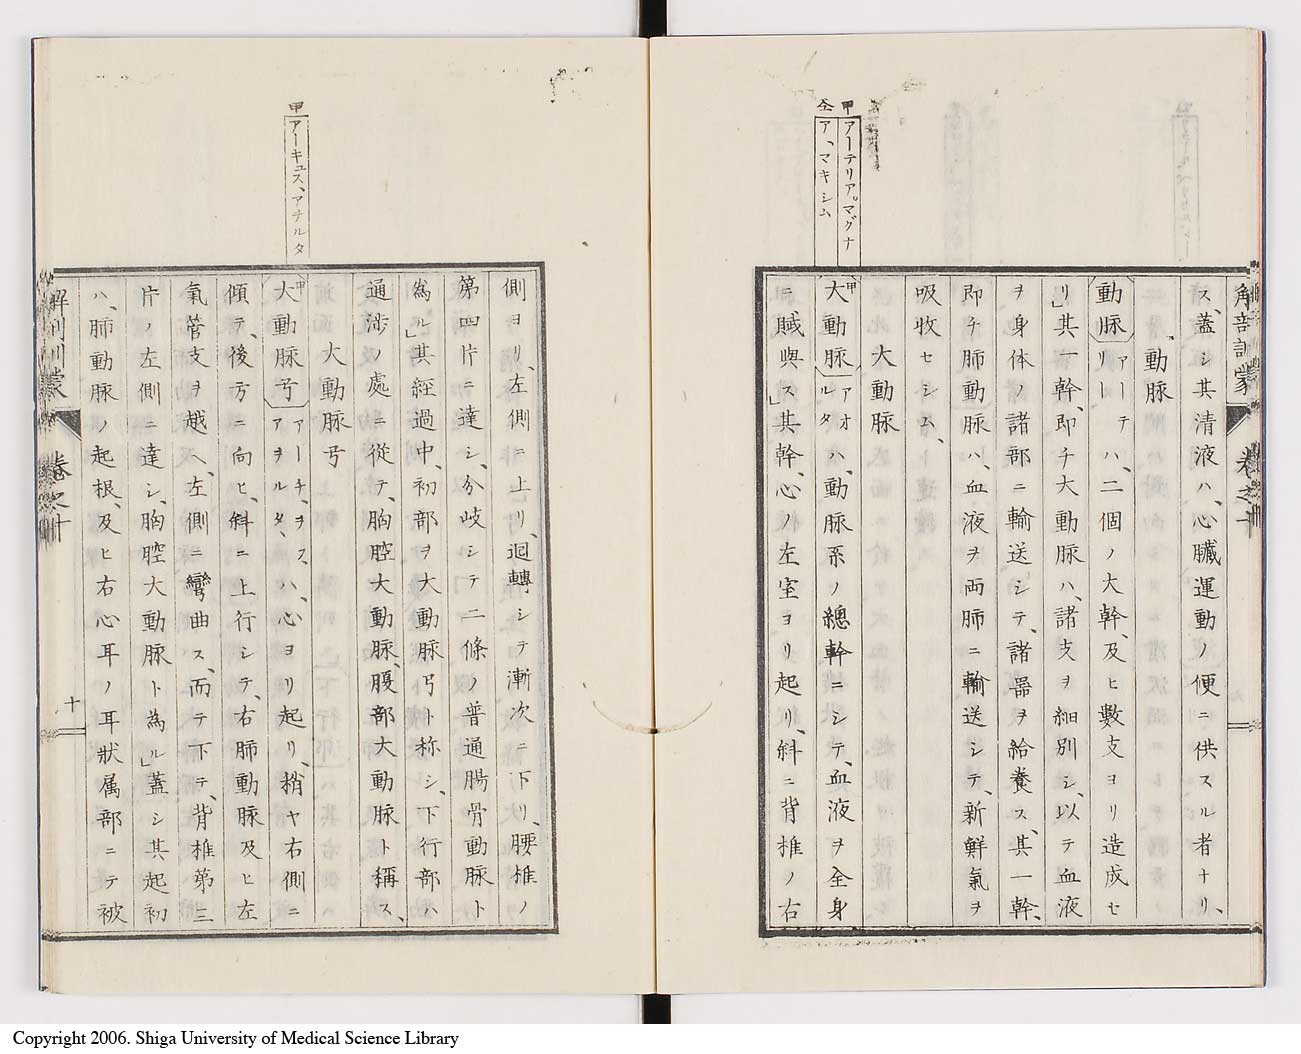 甲 アーテリア、マグナ
仝 ア、マキシム
解剖訓蒙 卷之十
ス、蓋シ其清液ハ、心臓運動ノ便ニ供スル者ナリ、
動脈
動脈 アーテリー ハ、二個ノ大幹、及ヒ數支ヨリ造成セ
リ」其一幹、即チ大動脈ハ、諸支ヲ細別シ、以テ血液
ヲ身体諸部ニ輸送シテ、諸器ヲ給養ス、其一幹、
即チ肺動脈ハ、血液ヲ両肺ニ輸送シテ、新鮮氣ヲ
吸收セシム、
大動脈
甲大動脈 アオルタ ハ、動脈系ノ總幹ニシテ、血液ヲ全身
ニ賦與ス」其幹、心ノ左室ヨリ起リ、斜ニ背椎ノ右
甲 アーキュス、アヲルタ
側ヨリ、左側ニ上リ、迴轉シテ漸次ニ下リ、腰椎ノ
第四片ニ達シ、分岐シテ二條ノ普通腸骨動脈ト
為ル」其経過中、初部ヲ大動脈弓ト称シ、下行部ハ
通渉ノ處ニ從テ、胸腔大動脈、腹部大動脈ト稱ス、
大動脈弓
甲大動脈弓 アーチ、ヲス、アヲルタ ハ、心ヨリ起リ、梢ヤ右側ニ
傾テ、後方ニ向ヒ、斜ニ上行シテ、右肺動脈及ヒ左
氣管支ヲ越ヘ、左側ニ彎曲ス、而テ下テ、背椎第三
片ノ左側ニ達シ、胸腔大動脈ト為ル」蓋シ其起初
ハ、肺動脈ノ起根、及ヒ右心耳ノ耳狀属部ニテ被
解剖訓蒙 卷之十 十
Copyright 2006. Shiga University of Medical Science Library